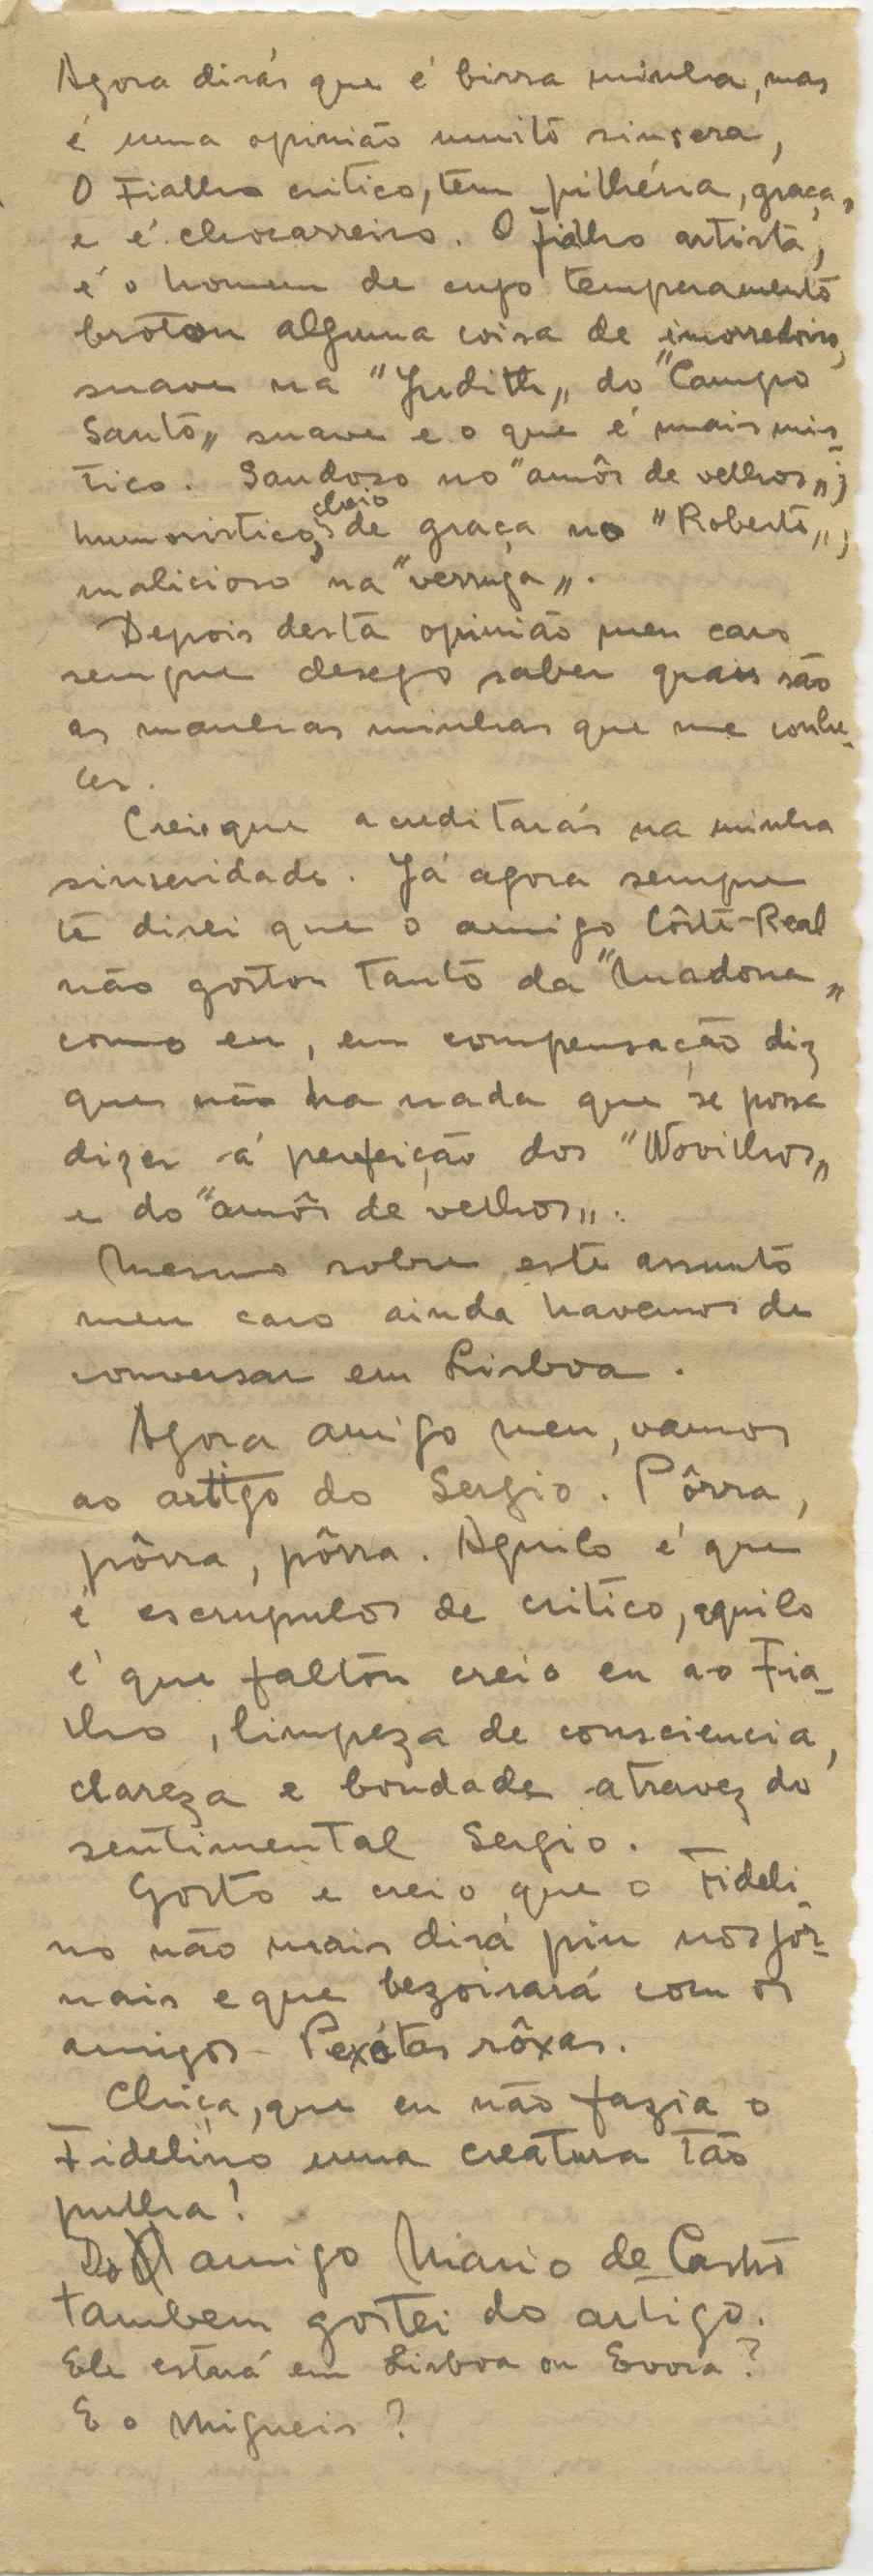 Agora dirás que é birra minha, mas
é uma opinião muito sinsera,
O Fialho critico, tem pilhéria, graça,
e é chocarreiro. O Fialho artista,
é o homem de cujo temperamento
brotou alguma coisa de imorredoiro,
suave na "Judith„ do "Campo
Santo„ suave e o que é mais mis-
tico. Saudoso no "amôr de velhos„;
humoristico, cheio de graça no "Roberto„,
malicioso na "verruga„.
Depois desta opinião meu caro
sempre desejo saber quais são
as manhas minhas que me conhe-
ces.
Creio que acreditarás na minha
sinseridade. Já agora sempre
te direi que o amigo Côrte-Real
não gostou tanto da "Madona„
como eu, em compensação diz
que não ha nada que se possa
dizer á perfeição dos "Novilhos„
e do "amôr de velhos„.
Mesmo sobre este assunto
meu caro ainda havemos de
conversar em Lisboa.
Agora amigo meu, vamos
ao artigo do Sergio. Pôrra,
pôrra, pôrra. Aquilo é que
é escrupulos de critico, aquilo
é que faltou creio eu ao Fia-
lho, limpeza de consciencia,
clareza e bondade atravez do
sentimental Sergio.
Gosto e creio que o Fideli-
no não mais dirá piu nos jor-
nais e que bezoirará com os
amigos - Pexótas rôxas.
Chiça, que eu não fazia o
Fidelino uma creatura tão
pulha!
Do amigo Mario de Castro
tambem gostei do artigo.
Ele estará em Lisboa ou Evora?
E o Migueis?